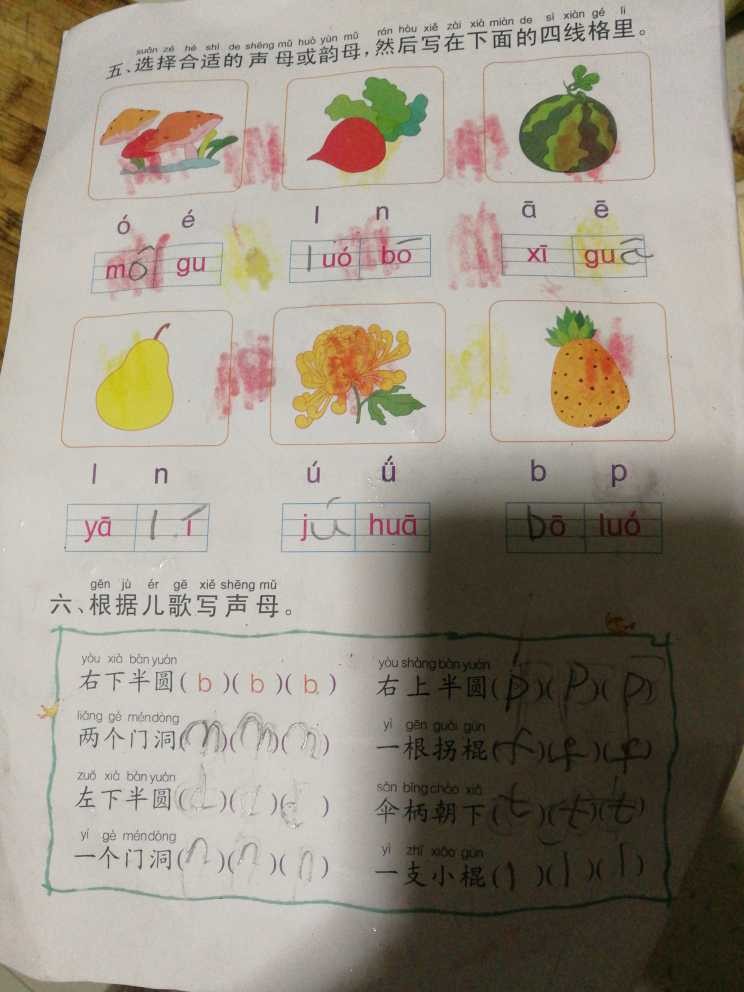 xuǎn zé hé shì de shēng mǔ huò yùn mǔ rán hòu xiě zài xià miàn de sì xiàn gé lǐ
五、选择合适的声母或韵母,然后写在下面的四线格里。
ó é l n ā ē
mó gu luó bo xī guā
l n ú ǘ b p
yā lí jú huā bō luó
gēn jù ér gē xiě shēng mǔ
六、根据儿歌写声母。
yòu xià bàn yuán yòu shàng bàn yuán
右下半圆(b)(b)(b) 右上半圆(p)(p)(p)
liǎng gè mén dòng yì gēn guǎi gùn
两个门洞(m)(m)(m) 一根拐棍(f)(f)(f)
zuǒ xià bàn yuán sǎn bǐng cháo xià
左下半圆(d)(d)(d) 伞柄朝下(t)(t)(t)
yí gè mén dòng yì zhī xiǎo gùn
一个门洞(n)(n)(n) 一支小棍(l)(l)(l)